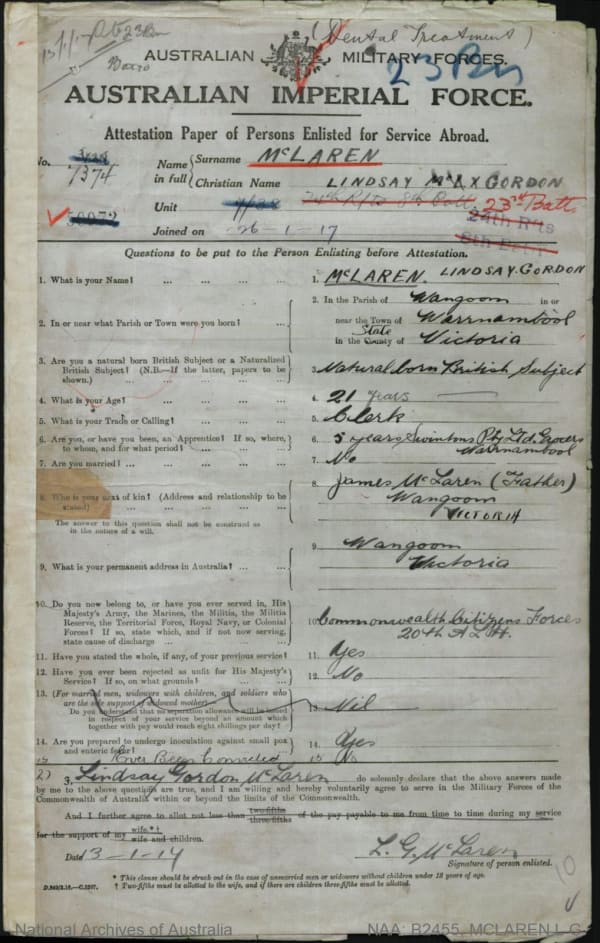 (Dental Treatment)
23 Bn
AUSTRALIAN MILITARY FORCES.
23 Bn
AUSTRALIAN IMPERIAL FORCE.
Attestation Paper of Persons Enlisted for Service Abroad.
No. 7374
Name in full { Surname McLAREN
Christian Name LINDSAY GORDON
50072
Unit 24th R/ts 8th Batt. 23rd Batt
24th R'ts
8th
Joined on 26-1-17
Questions to be put to the Person Enlisting before Attestation.
1. What is your Name? ... 1. McLAREN. LINDSAY GORDON
2. In or near what Parish or Town were you born? ... 2. In the Parish of Wangoom in or
near the Town of Warrnambool
in the County of State Victoria
3. Are you a natural born British Subject or a Naturalized
British Subject? (N.B.—If the latter, papers to be
shown.) ... 3. Natural born British Subject
4. What is your Age? ... 4. 21 years
5. What is your Trade or Calling? ... 5. Clerk
6. Are you, or have you been, an Apprentice? If so, where,
to whom, and for what period? ... 6. 5 years Swintons Pty Ltd. Grocers
Warrnambool
7. Are you married? ... 7. No
8. Who is your next of kin? (Address and relationship to be
stated) 8. James McLaren (Father)
Wangoom
VICTORIA
The answer to this question shall not be construed as
in the nature of a will.
9. What is your permanent address in Australia? ... 9. Wangoom
Victoria
10. Do you now belong to, or have you ever served in, His
Majesty's Army, the Marines, the Militia, the Militia
Reserve, the Territorial Force, Royal Navy, or Colonial
Forces? If so, state which, and if not now serving,
state cause of discharge ... 10. Commonwealth Citizens Forces
20th A L H.
11. Have you stated the whole, if any, of your previous service? 11. Yes
12. Have you ever been rejected as unfit for His Majesty's
Service? If so, on what grounds? ... 12. No
13. (For married men, widowers with children, and soldiers who
are the sole support of widowed mother)
Do you understand that no separation allowance will be issued
in respect of your service beyond an amount which
together with pay would reach eight shillings per day? 13. Nil
14. Are you prepared to undergo inoculation against small pox
and enteric fever? 14. Yes
15 Ever Been Convicted 15 No
I, Lindsay Gordon McLaren do solemnly declare that the above answers made
by me to the above questions are true, and I am willing and hereby voluntarily agree to serve in the Military Forces of the
Commonwealth of Australia within or beyond the limits of the Commonwealth.
And I further agree to allot not less than two-fifths three-fifths of the pay payable to me from time to time during my service
for the support of my wife.*† wife and children.
Date 13-1-17
L. G. McLaren
Signature of person enlisted.
10
* This clause should be struck out in the case of unmarried men or widowers without children under 18 years of age.
† Two-fifths must be allotted to the wife, and if there are children three-fifths must be allotted.
National Archives of Australia
NAA: B2455, MCLAREN L G